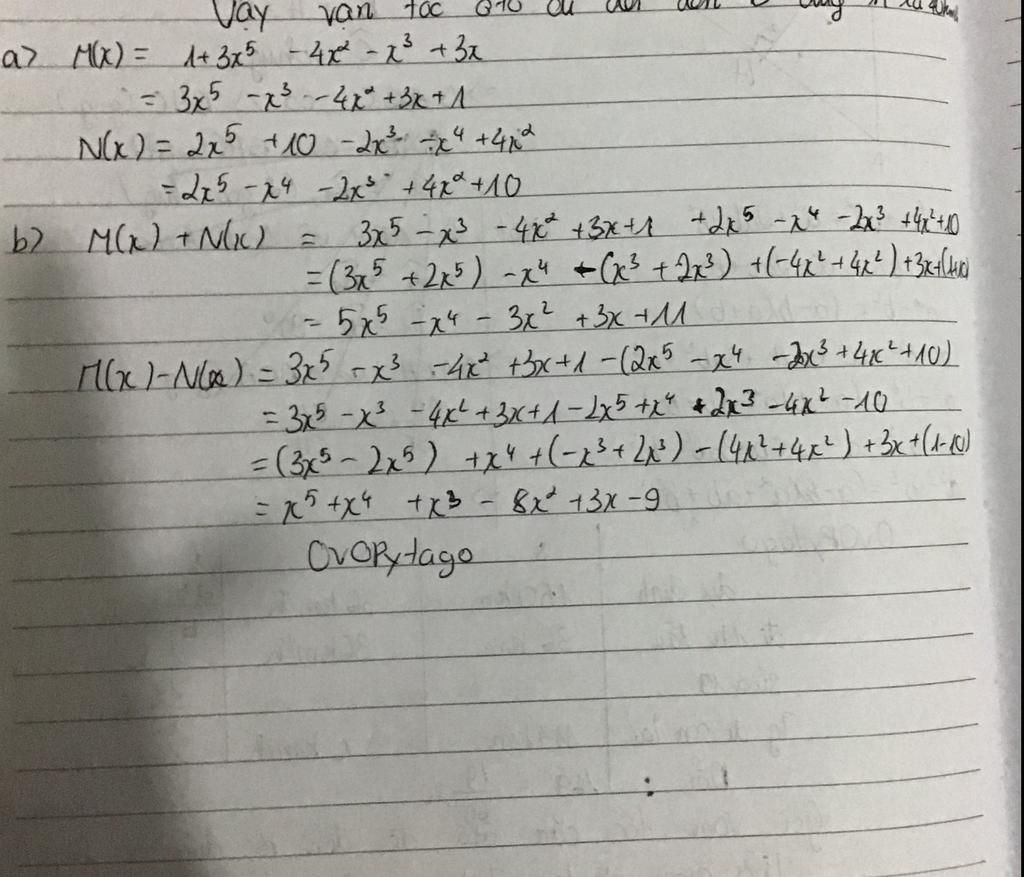 Vậy vận tốc
a) M(x) = 1+3x⁵ - 4x² - x³ + 3x
= 3x⁵ - x³ - 4x² + 3x + 1
N(x) = 2x⁵ + 10 - 2x³ - x⁴ + 4x²
= 2x⁵ - x⁴ - 2x³ + 4x² + 10
b) M(x) + N(x) = 3x⁵ - x³ - 4x² + 3x + 1 + 2x⁵ - x⁴ - 2x³ + 4x² + 10
= (3x⁵ + 2x⁵) - x⁴ - (x³ + 2x³) + (-4x² + 4x²) + 3x + (1+10)
= 5x⁵ - x⁴ - 3x² + 3x + 11
M(x) - N(x) = 3x⁵ - x³ - 4x² + 3x + 1 - (2x⁵ - x⁴ - 2x³ + 4x² + 10)
= 3x⁵ - x³ - 4x² + 3x + 1 - 2x⁵ + x⁴ + 2x³ - 4x² - 10
= (3x⁵ - 2x⁵) + x⁴ + (-x³ + 2x³) - (4x² + 4x²) + 3x + (1-10)
= x⁵ + x⁴ + x³ - 8x² + 3x - 9
OvOPytago